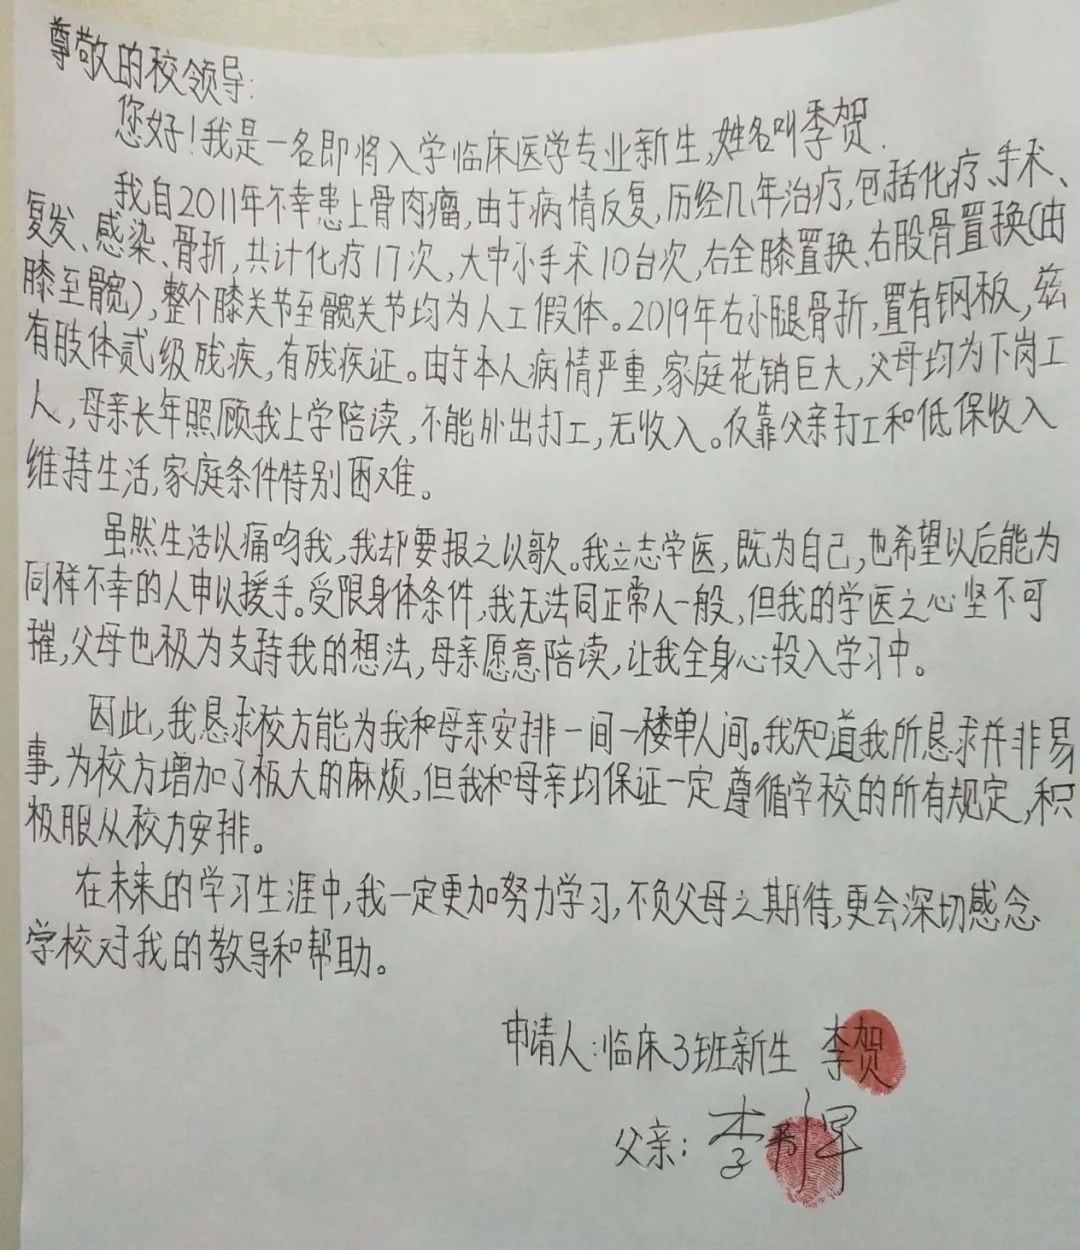 尊敬的校领导:
您好!我是一名即将入学临床医学专业新生,姓名叫李贺.
我自2011年不幸患上骨肉瘤,由于病情反复,历经几年治疗,包括化疗、手术、
复发、感染、骨折,共计化疗17次,大中小手术10台次,右全膝置换、右股骨置换(由
膝至髋),整个膝关节至髋关节均为人工假体。2019年右小腿骨折,置有钢板,兹
有肢体贰级残疾,有残疾证。由于本人病情严重,家庭花销巨大,父母均为下岗工
人,母亲长年照顾我上学陪读,不能外出打工,无收入。仅靠父亲打工和低保收入
维持生活,家庭条件特别困难。
虽然生活以痛吻我,我却要报之以歌。我立志学医,既为自己,也希望以后能为
同样不幸的人申以援手。受限身体条件,我无法同正常人一般,但我的学医之心坚不可
摧,父母也极为支持我的想法,母亲愿意陪读,让我全身心投入学习中。
因此,我恳求校方能为我和母亲安排一间一楼单人间。我知道我所恳求并非易
事,为校方增加了极大的麻烦,但我和母亲均保证一定遵循学校的所有规定,积
极服从校方安排。
在未来的学习生涯中,我一定更加努力学习,不负父母之期待,更会深切感念
学校对我的教导和帮助。
申请人:临床3班新生 李贺
父亲:李